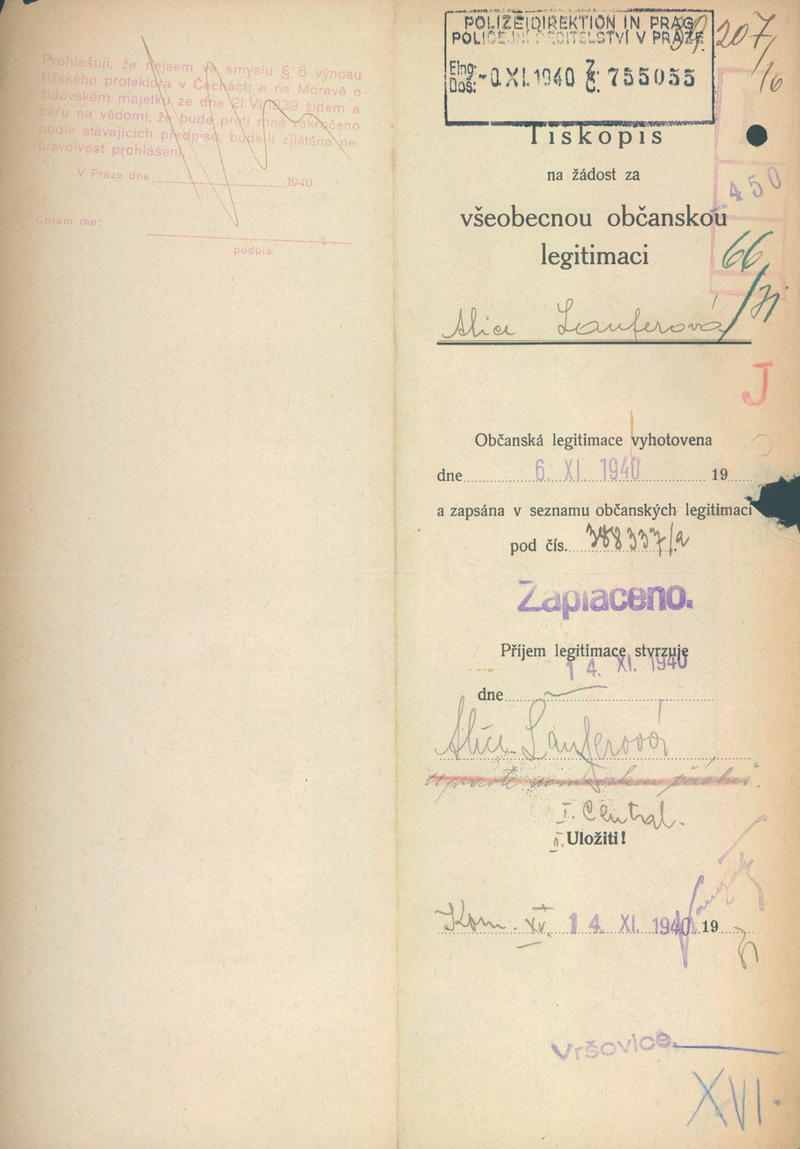 Prohlašuji, že nejsem ve smyslu § 6 výnosu
říšského protektora v Čechách a na Moravě o
židovském majetku ze dne 21. VI. 1939 židem a
béru na vědomí, že bude proti mně zakročeno
podle stávajících předpisů, bude-li zjištěna ne-
pravdivost prohlášení.
V Praze dne 1940.
Coram me:
podpis.
POLIZEIDIREKTION IN PRAG
POLICEJNÍ ŘEDITELSTVÍ V PRAZE
Eing.
Doš. XI. 1940 Z. Č. 755055
207
16
Tiskopis
na žádost za
450
všeobecnou občanskou
legitimaci
66
Alice Lauferová
J
Občanská legitimace vyhotovena
dne 6. XI. 1940 19
a zapsána v seznamu občanských legitimací
pod čís. 388337/a
Zaplaceno.
Příjem legitimace stvrzuje
14. XI. 1940
dne
Alice Lauferová
I. Central.
II. Uložiti!
Kom. XV. 14. XI. 1940 19
Vršovice
XVI.